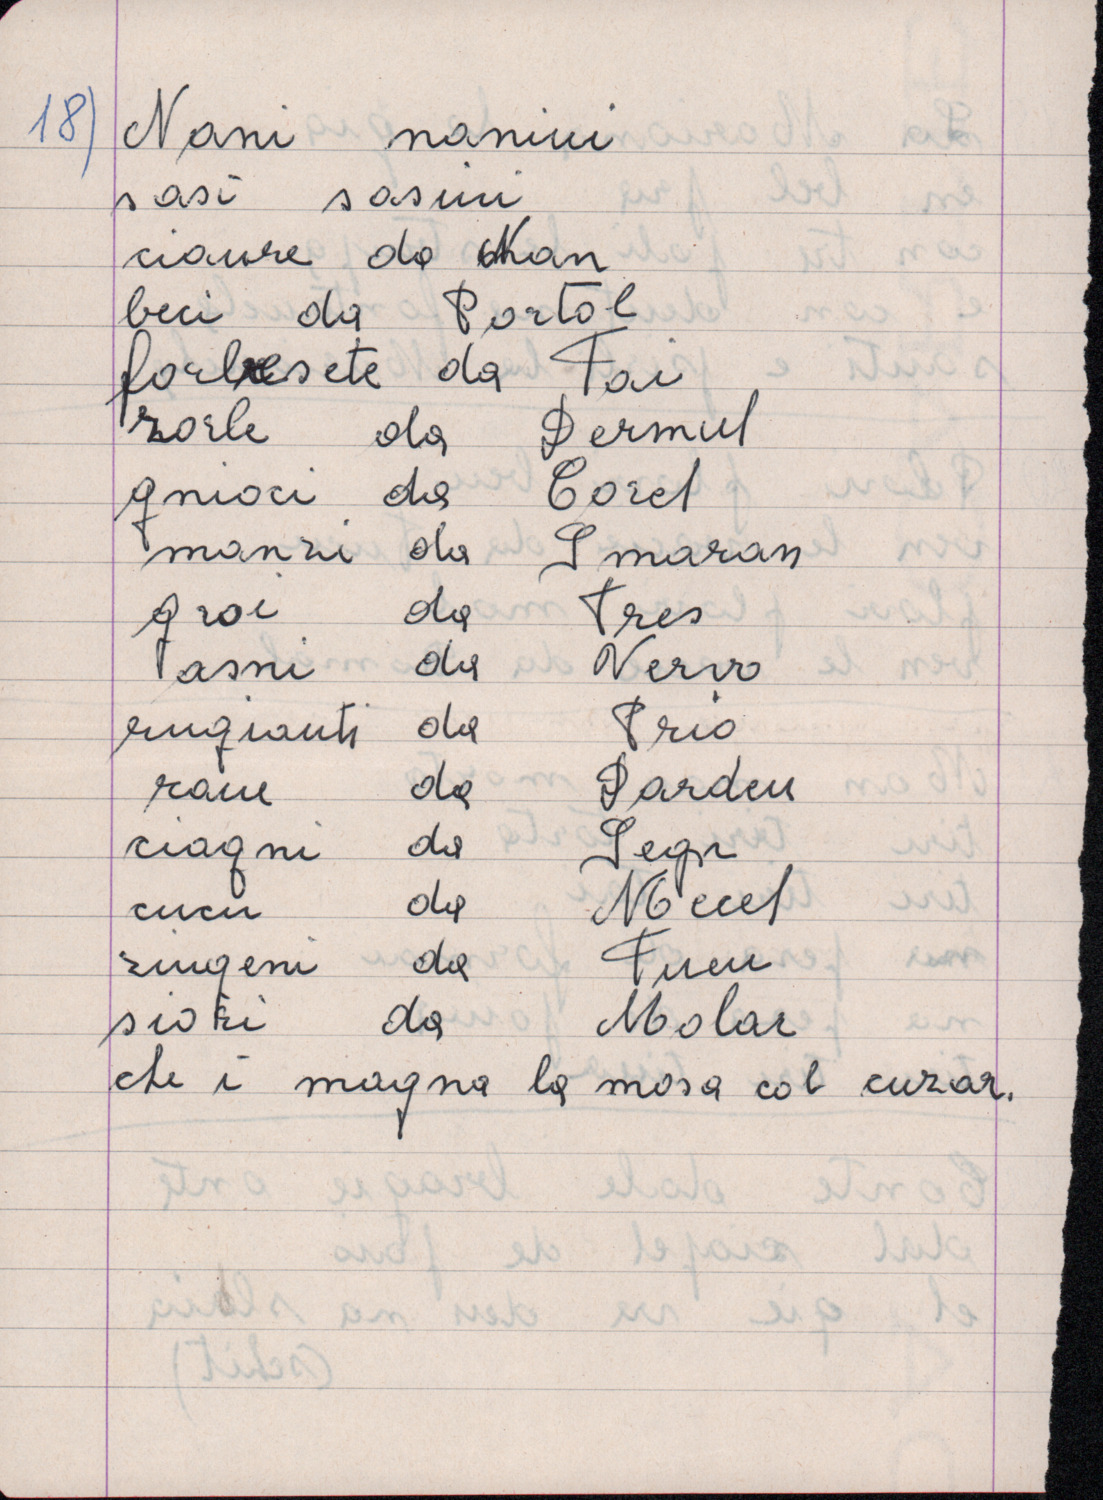 18) Nani nanini
sasi sasini
ciaure da Nan
beci da Portòl
forbesete da Tai
zorle da Dermul
gnioci da Corel
manzi da Smaran
groi da Tres
asni da Vervo
rugianti da Prio
rane da Darden
ciagni da Segn
cucu da Mecel
zingeni da Tuen
siori da Molar
che i magna la mosa col cuzar.